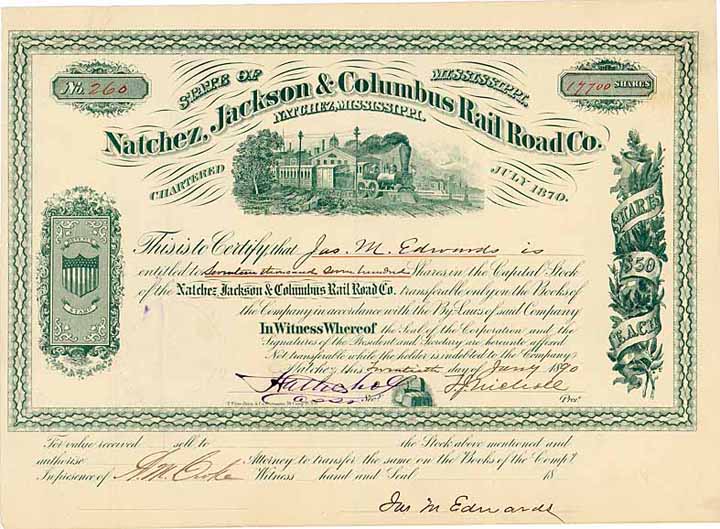 No. 260
STATE OF MISSISSIPPI.
17700 SHARES
Natchez, Jackson & Columbus Rail Road Co.
NATCHEZ, MISSISSIPPI.
CHARTERED JULY 1870.
This is to Certify, that Jas. M. Edwards is
entitled to Seventeen thousand Seven hundred Shares in the Capital Stock
of the Natchez, Jackson & Columbus Rail Road Co. transferable only on the Books of
the Company in accordance with the By Laws of said Company
In Witness Whereof the Seal of the Corporation and the
Signatures of the President and Secretary are hereunto affixed
Not transferable while the holder is indebted to the Company
Natchez this twentieth day of Jany 1890
Secy
Prest
SHARES
$50
EACH
For value received sell to the Stock above mentioned and
authorise Attorney to transfer the same on the Books of the Compy
In presence of Witness hand and Seal 18
Jas M Edwards